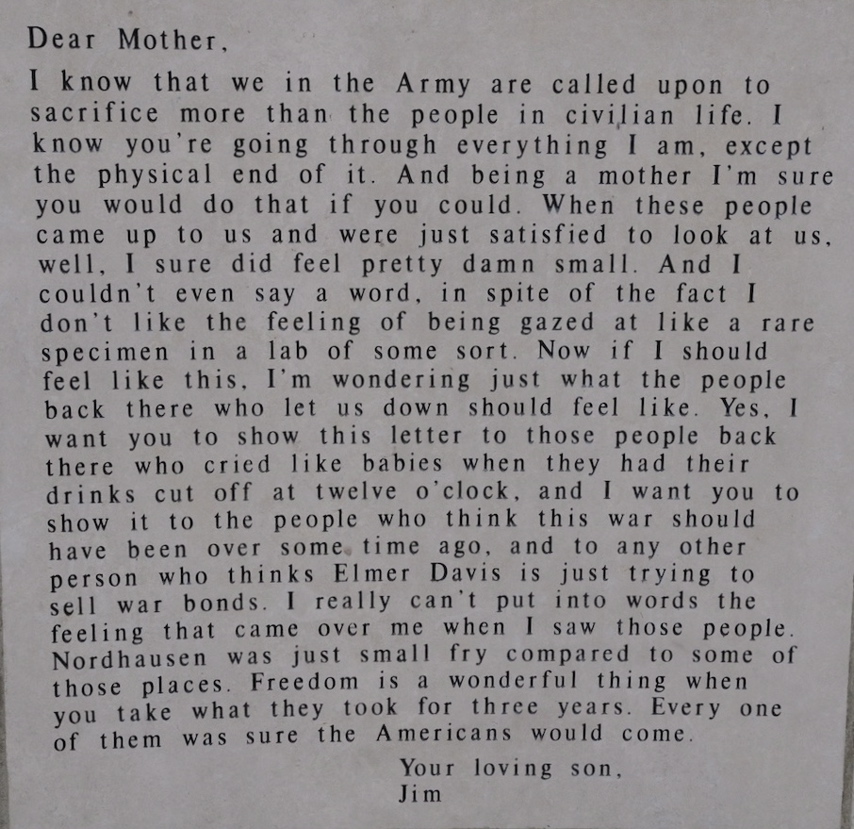 Dear Mother,
I know that we in the Army are called upon to
sacrifice more than the people in civilian life. I
know you're going through everything I am, except
the physical end of it. And being a mother I'm sure
you would do that if you could. When these people
came up to us and were just satisfied to look at us,
well, I sure did feel pretty damn small. And I
couldn't even say a word, in spite of the fact I
don't like the feeling of being gazed at like a rare
specimen in a lab of some sort. Now if I should
feel like this, I'm wondering just what the people
back there who let us down should feel like. Yes, I
want you to show this letter to those people back
there who cried like babies when they had their
drinks cut off at twelve o'clock, and I want you to
show it to the people who think this war should
have been over some time ago, and to any other
person who thinks Elmer Davis is just trying to
sell war bonds. I really can't put into words the
feeling that came over me when I saw those people.
Nordhausen was just small fry compared to some of
those places. Freedom is a wonderful thing when
you take what they took for three years. Every one
of them was sure the Americans would come.
Your loving son,
Jim